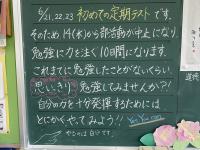 6/21,22,23 初めての定期テストです。
そのため14(水)から部活動が中止になり
勉強に力を注ぐ10日間になります。
これまでに勉強したことがないくらい、
思いっきり勉強してみませんか?!
自分の力を十分発揮するためには
とにかくやってみよう!!
やるのは自分です。